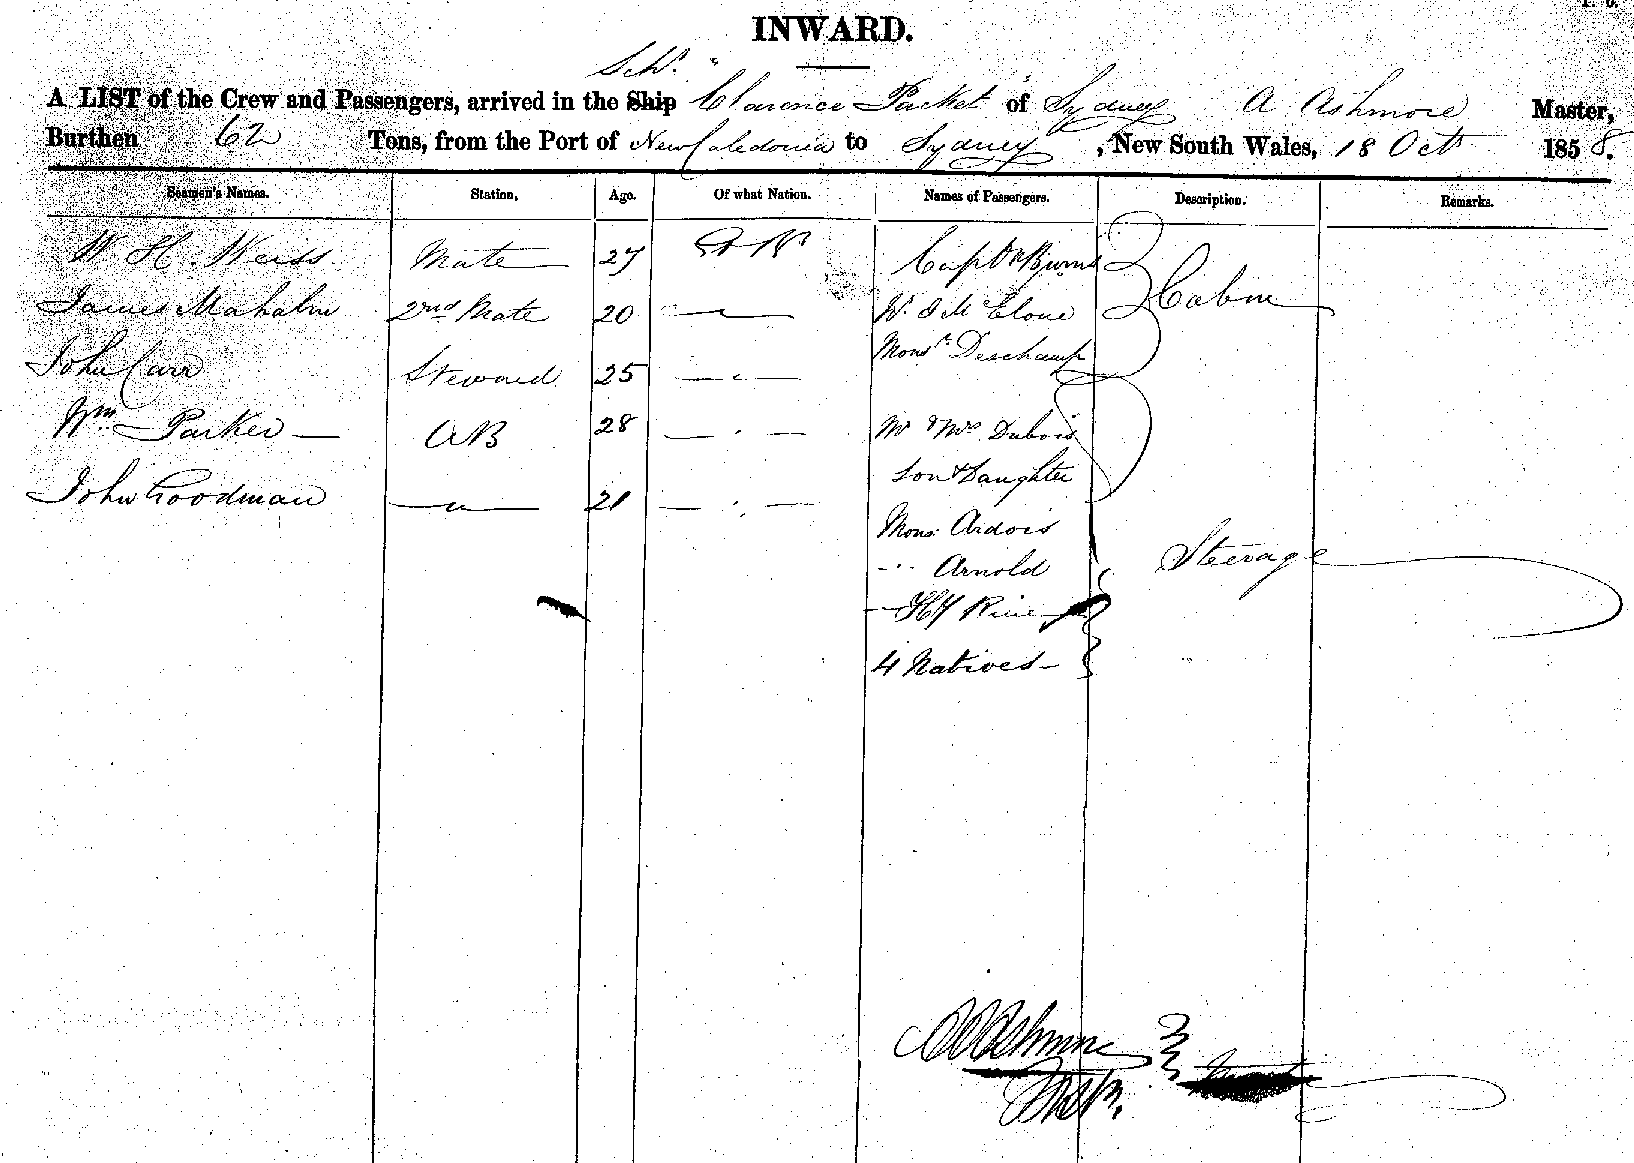 INWARD.
Schr. "
A LIST of the Crew and Passengers, arrived in the Ship Clarence Packet" of Sydney A Ashmore Master,
Burthen 62 Tons, from the Port of New Caledonia to Sydney, New South Wales, 18 Oct 1858.
Seamen's Names. Station, Age. Of what Nation. Names of Passengers. Description. Remarks.
W. H. Weiss Mate 27 Capt Burns
James 2nd Mate 20 Cabin
John Carr Steward 25 Monsr Deschamp
Wm Parker AB 28 Mr & Mrs Dubois
Son & Daughter
John Goodman 21
Mons. Ardois
Arnold Steerage
Hy
4 Natives
AAshmore